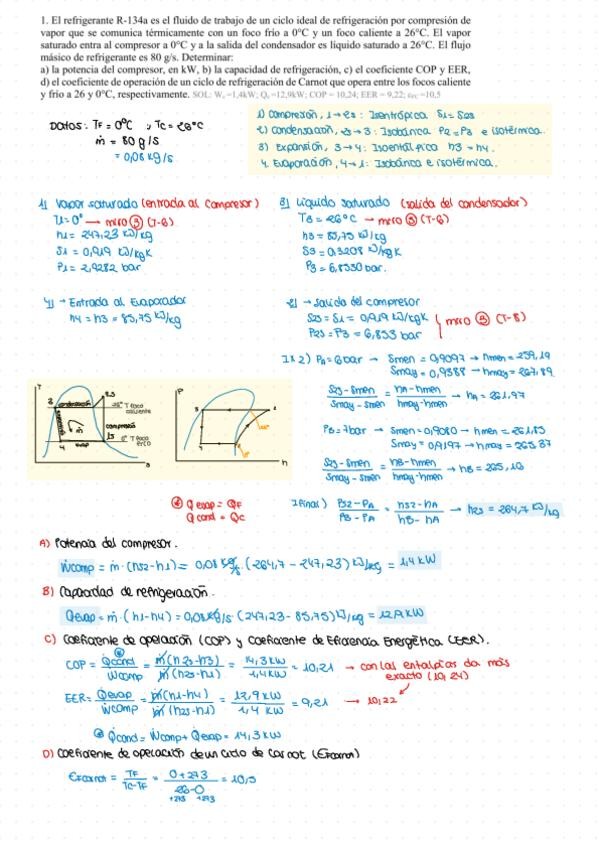 1. El refrigerante R-134a es el fluido de trabajo de un ciclo ideal de refrigeración por compresión de
vapor que se comunica térmicamente con un foco frío a 0°C y un foco caliente a 26°C. El vapor
saturado entra al compresor a 0°C y a la salida del condensador es líquido saturado a 26°C. El flujo
másico de refrigerante es 80 g/s. Determinar:
a) la potencia del compresor, en kW, b) la capacidad de refrigeración, c) el coeficiente COP y EER,
d) el coeficiente de operación de un ciclo de refrigeración de Carnot que opera entre los focos caliente
y frío a 26 y 0°C, respectivamente. SOL: Wc=1,4kW; Qe=12,9kW; COP = 10,24; EER = 9,22; εc =10,5
Datos: TF = 0°C y TC = 26°C
ṁ = 80 g/s
= 0,08 kg/s
1) compresión, 1→2s: Isentrópica S1 = S2s
2) condensación, 2→3: Isobárica P2 = P3 e isotérmica.
3) Expansión, 3→4: Isoentálpica h3 = h4.
4. Evaporación, 4→1: Isobárica e isotérmica.
1) Vapor saturado (entrada al compresor)
T1 = 0° → miro (T-6)
h1 = 247,23 kJ/kg
S1 = 0,919 kJ/kgK
P1 = 2,9282 bar
3) Líquido saturado (salida del condensador)
T3 = 26°C → miro (T-6)
h3 = 85,75 kJ/kg
S3 = 0,3208 kJ/kgK
P3 = 6,8530 bar.
4) → Entrada al Evaporador
h4 = h3 = 85,75 kJ/kg
2) → Salida del compresor
S2s = S1 = 0,919 kJ/kgK
P2s = P3 = 6,853 bar
miro (T-8)
1x2) PA = 6 bar → Smen = 0,9097 → hmen = 259,19
Smay = 0,9388 → hmay = 267,89
S2s - Smen / Smay - Smen = hA - hmen / hmay - hmen → hA = 261,97
PB = 7 bar → Smen = 0,9080 → hmen = 261,85
Smay = 0,9197 → hmay = 265,37
S2s - Smen / Smay - Smen = hB - hmen / hmay - hmen → hB = 265,16
Ifinal) P2s - PA / PB - PA = h2s - hA / hB - hA → h2s = 264,7 kJ/kg
T
2
condensación
2s
26° T foco caliente
compresión
1s
0° T foco frío
4
evap
s
P
3
2
4
1
h
Q evap = QF
Q cond = QC
A) Potencia del compresor.
Ẇcomp = ṁ · (h2s - h1) = 0,08 kg/s · (264,7 - 247,23) kJ/kg = 1,4 kW
B) Capacidad de refrigeración.
Q̇evap = ṁ · (h1 - h4) = 0,08 kg/s (247,23 - 85,75) kJ/kg = 12,9 kW
C) Coeficiente de operación (COP) y Coeficiente de Eficiencia Energética (EER).
COP = Q̇cond / Ẇcomp = ṁ (h2s - h3) / ṁ (h2s - h1) = 14,3 kW / 1,4 kW = 10,21 → con las entalpías da más
exacto (10,24)
EER = Q̇evap / Ẇcomp = ṁ (h1 - h4) / ṁ (h2s - h1) = 12,9 kW / 1,4 kW = 9,21 → 10,22
Q̇cond = Ẇcomp + Q̇evap = 14,3 kW
D) Coeficiente de operación de un ciclo de carnot (Ɛcarnot)
Ɛcarnot = TF / TC - TF = 0 + 273 / 26 - 0 = 10,5
+273 +273